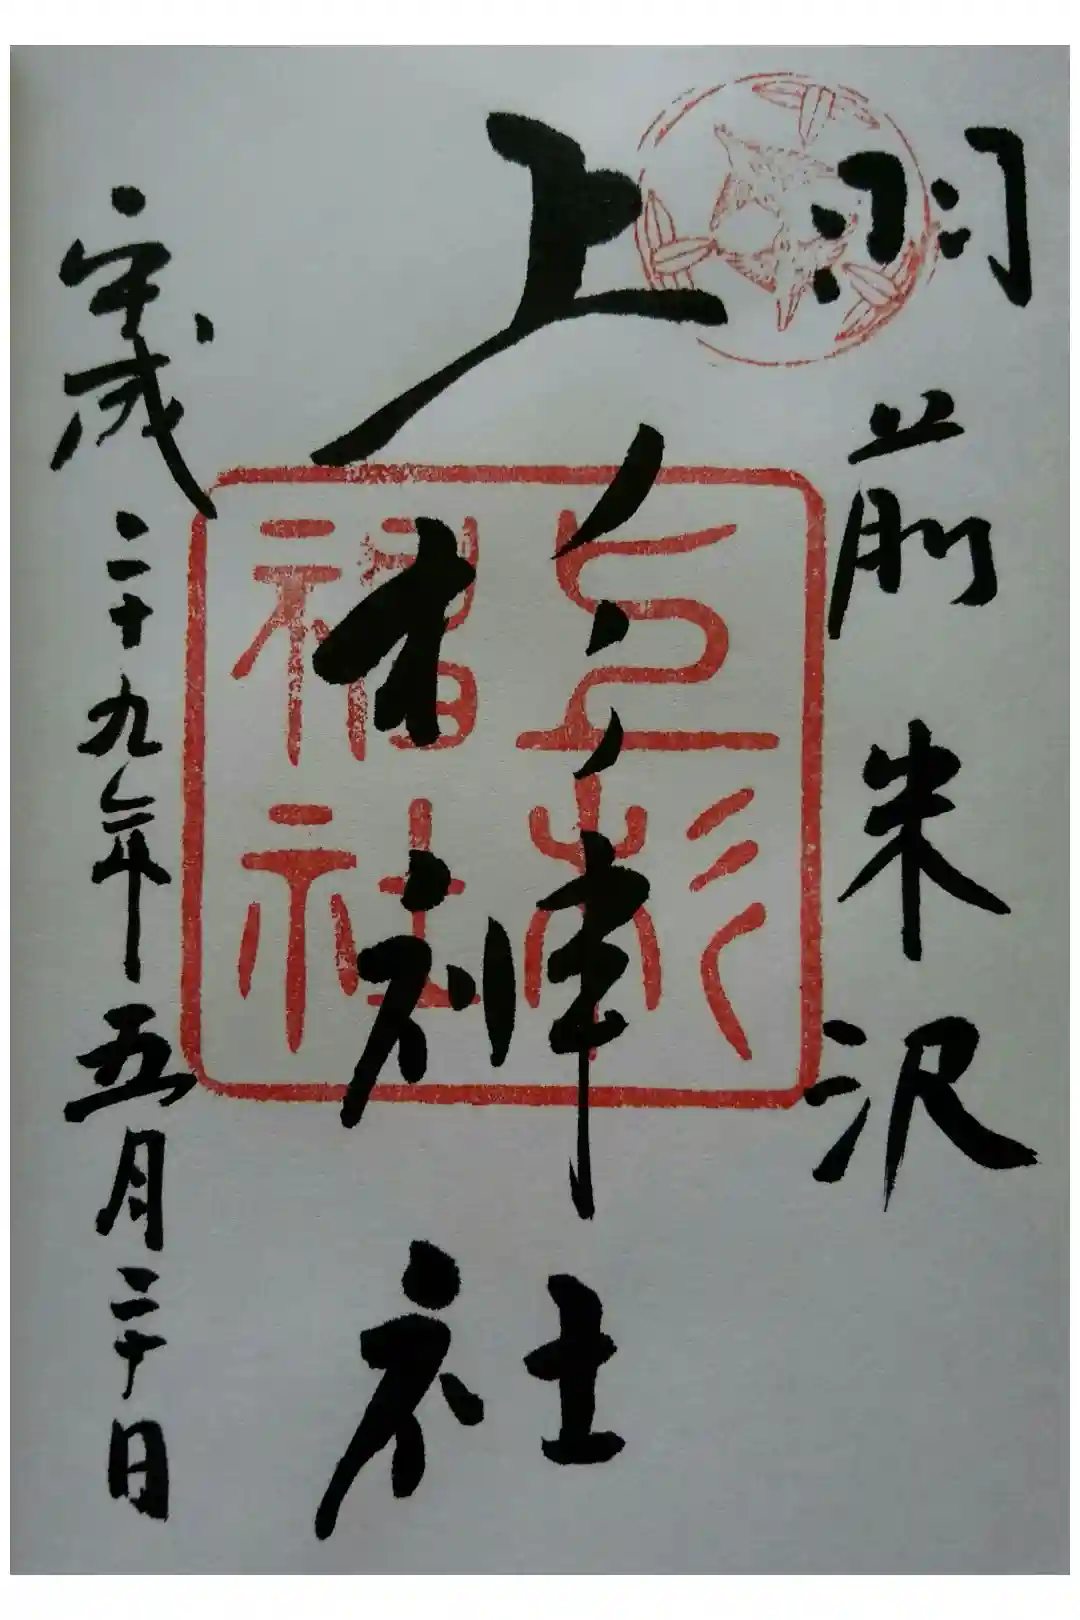 羽前米沢
上杉神社
平成二十九年五月二十日
上杉神社